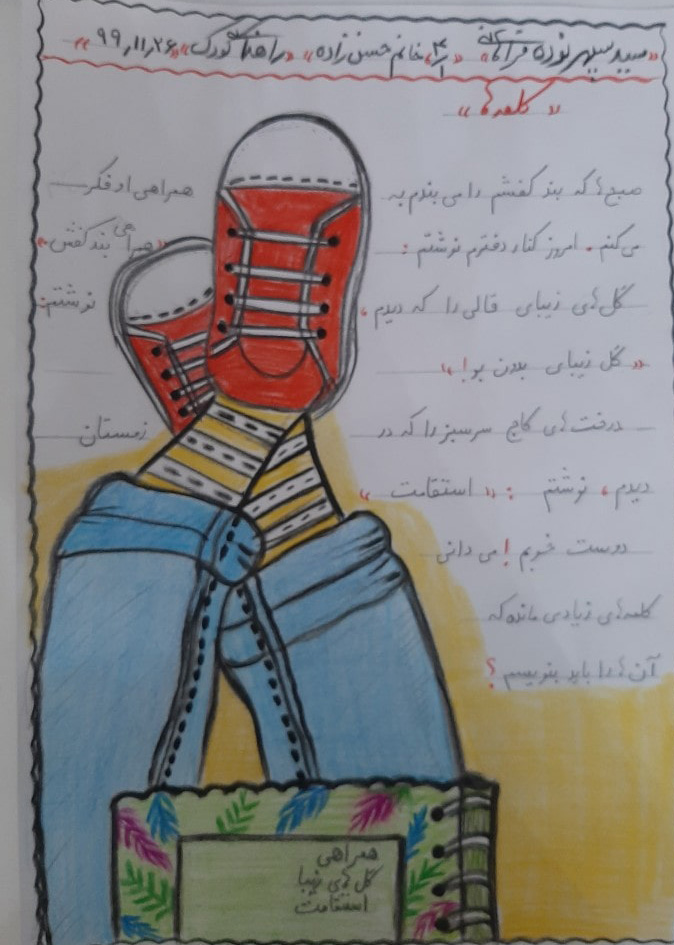 «سید سپهر نوده فراهانی» «۴/۱» «خانم حسن زاده» «راهنمای کودک» «۹۹,۱۱,۲۶»
«کلمه ها»
صبح ها که بند کفشم را می بندم به همراهی او فکر
می کنم. امروز کنار دفترم نوشتم: «همراهی بند کفش»
گل های زیبای قالی را که دیدم، نوشتم:
«گل زیبای بدون بو!»
درخت های کاج سرسبز را که در زمستان
دیدم، نوشتم: «استقامت»
دوست خوبم! می دانی
کلمه های زیادی مانده که
آن ها را باید بنویسم؟
همراهی
گل های زیبا
استقامت